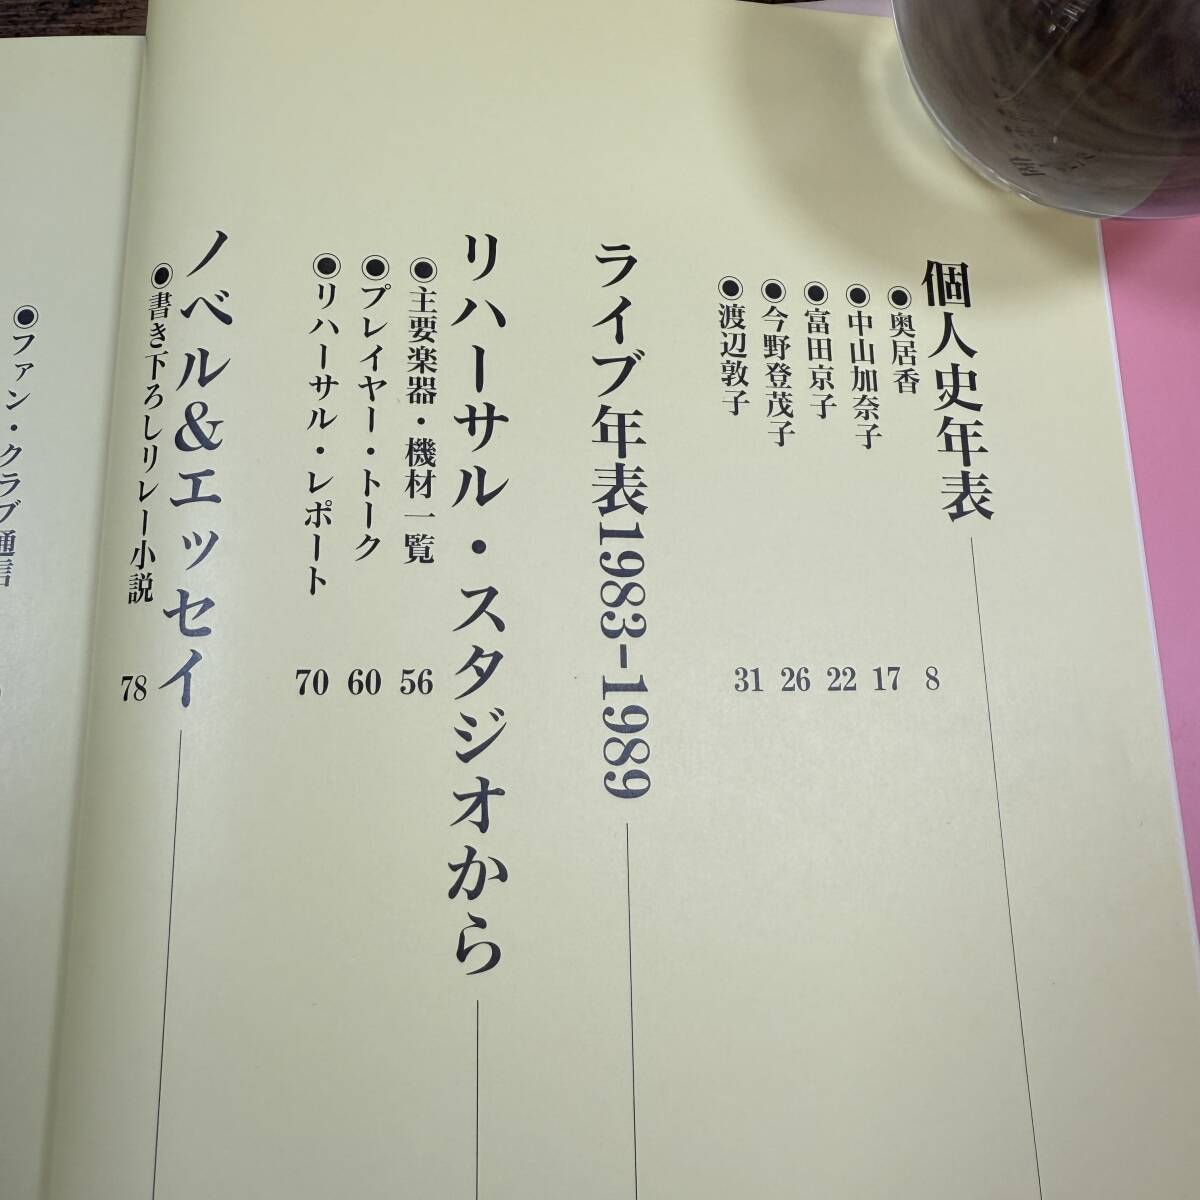 個人史年表
◉奥居香
8
◉中山加奈子
17
◉富田京子
22
◉今野登茂子
26
◉渡辺敦子
31
ライブ年表1983-1989
リハーサル・スタジオから
◉主要楽器・機材一覧
56
◉プレイヤー・トーク
60
◉リハーサル・レポート
70
ノベル&エッセイ
◉書き下ろしリレー小説
78
◉ファン・クラブ通信